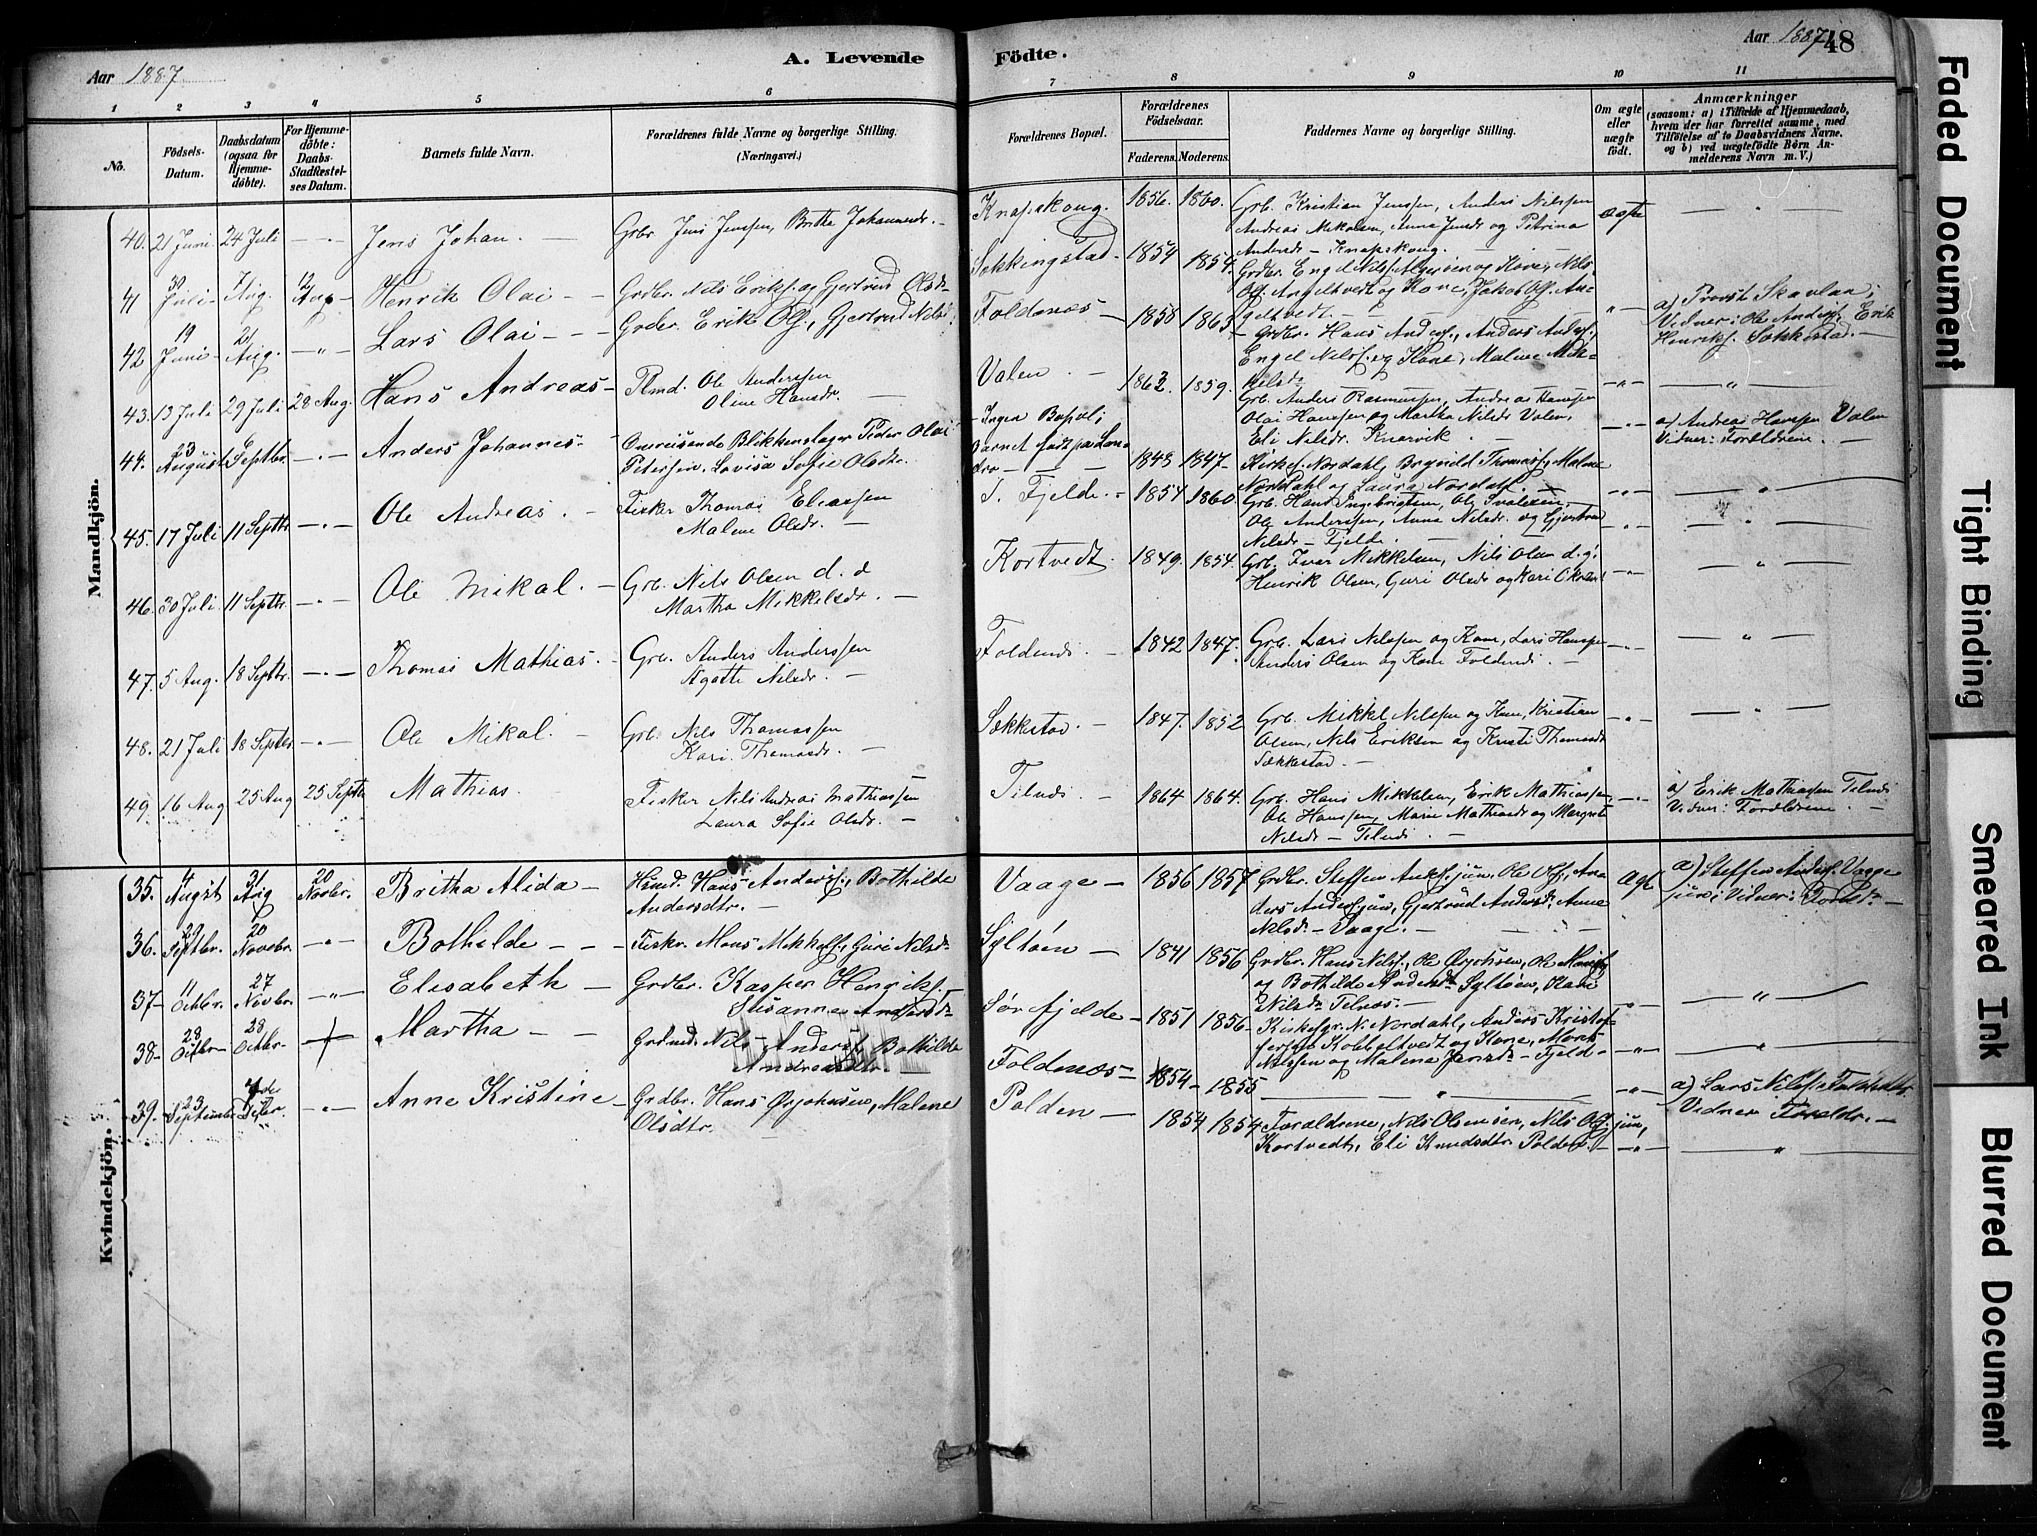 Aar 1887
A. Levende
Fødte.
Aar 1887
48
1 2 3 4 5 6 7 8 9 10 11
No.
Födsels-
Datum.
Daabsdatum
(ogsaa for
Hjemme-
døbte).
For Hjemme-
døbte:
Daabs-
Stadfæstel-
ses Datum.
Barnets fulde Navn.
Forældrenes fulde Navne og borgerlige Stilling.
(Næringsvei.)
Forældrenes Bopæl.
Forældrenes
Fødselsaar.
Faderens. Moderens.
Faddernes Navne og borgerlige Stilling.
Om ægte
eller
uægte
født.
Anmærkninger
(saasom: a) i Tilfælde af Hjemmedaab,
hvem der har forrettet samme, med
Tilføielse af to Daabsvidners Navne,
og b) ved uægtefødte Børn An-
melderens Navn m. V.)
Mandkjön.
40. 21 Juni 24 Juli — Jens Johan. — Grbr. Jens Jenssen, Britha Johannesdr. —
Knapskoug. 1856. 1860. Grb. Kristian Jenssen, Anders Nilssen
Andreas Nikolsen, Anna Jensdr og Petrina
Andersdr — Knapskoug. — ægte
41 30 Juli — Aug. 12 Aug — Henrik Olai — Grdbr. Nils Eriks. og Gjertrud Olsdr
Sækkingstad. 1854 1854. Grdbr. Engel Nils. Algerøen og Kone, Nils
Ols. Angeltvedt og Kone, Jakob Ols. An-
geltvedt. —
a) Provst Skavlan;
Vidner: Ole Anders, Erik
Henriks. Sækkestad. —
42 19 Juni — 21 Aug. — Lars Olai — Grdbr. Erik Ols., Gjertrud Nils
Foldenæs — 1858 1863 — Grdbr. Hans Anders., Anders Anders.,
Engel Nils. og Kone, Malene Mik-
kelsdr
43. 13 Juli 29 Juli 28 Aug. Hans Andreas — Plmd. Ole Anderssen
Oline Hansdr. —
Valen. — 1862. 1859. Grb. Anders Rasmussen, Andreas Hanssen
Olai Hanssen og Martha Nilsdr Valen,
Eli Nilsdr. Knarvik. —
a) Andreas Hanssen Valen
Vidner: Forældrene. —
44. 23 August Septbr. — Anders Johannes. — Omreisende Blikkenslager Peder Olai
Petersen, Lovisa Sofie Olsdr. —
— Ingen Bopæl;
Barnet født paa Lan-
dro — 1843 1847 — Kirkes. Nordahl, Brynild Thomass., Malene
Nordahl og Laura Nordahl. —
45. 17 Juli 11 Septbr. — Ole Andreas. — Fisker Thomas Eliassen
Malene Olsdr. —
S. Fjelde. — 1854 1860. Grb. Hans Ingebrigtsen, Ole
Ole Anderssen, Anna Nilsdr. og Gjertrud
Nilsdr — Fjelde. —
46. 30 Juli 11 Septbr. — Ole Mikal. — Grb. Nils Olsen d. æ
Martha Mikkelsdr. —
Kortvedt. 1849. 1854. Grb. Iver Mikkelsen, Nils Olsen d. y.
Henrik Olsen, Guri Olsdr og Kari
47. 5 Aug. 18 Septbr. — Thomas Mathias. — Grb. Anders Anderssen
Agathe Nilsdr. —
Foldenæs. — 1842 1847. Grb. Lars Nilssen og Kone, Lars Hanssen
Anders Olsen og Kone Foldenæs. —
48. 21 Juli 18 Septbr — Ole Mikal. — Grb. Nils Thomassen
Kari Thomasdr. —
Sækkestad. — 1847. 1852 Grb. Mikkel Nilssen og Kone, Kristian
Olsen, Nils Eriksen og Kristi Thomasdr
Sækkestad. —
49. 16 Aug 25 Aug 25 Septbr Mathias. Fisker Nils Andreas Mathiassen
Laura Sofie Olsdr. —
Telnæs — 1864 1864. Grb. Hans Mikkelsen, Erik Mathiassen,
Ole Hanssen, Marie Mathiasdr og Margrete
Nilsdr — Telnæs. —
a) Erik Mathiassen Telnæs
Vidner: Forældrene. —
Kvindekjön.
35. 4 August 31 Aug 20 Novbr. Britha Alida — Hmd. Hans Anders., Bothilde
Andersdtr. —
Vaage — 1856 1857 Grdbr. Steffen Anders. jun. Ole Ols., An-
ders Anders. jun, Gjertrud Andersdr, Anne
Nilsdr — Vaage. — ægte
a) Steffen Anders. Vaage
jun; Vidner: Foræld. —
36. 29 Septbr. 20 Novbr. — Bothilde — Fiskr. Mons Mikkels., Guri Nilsdr
Syltøen — 1841 1856 Grdbr. Hans Nils., Ole Ørjohnsen, Ole
og Bothilde Andersdr Syltøen, Kari
Nilsdr Telnæs. —
37 — 11 Octbr. 27 Novbr. — Elisabeth — Grdbr. Kasper Henriks.,
Susanna Andersdr
Sør fjelde — 1851 1856 — Kirkesgr. N. Nordahl, Anders Kristof-
fersen Kobbeltvedt og Kone, Mons
Nilssen og Malene Jensdr — Fjeld —
38 — 28 Octbr — 28 Octbr — Martha — Grdmd. Nils Anders., Bothilde
Andreasdtr
Foldenæs — 1854 — 1855
a) Lars Nils. Foldenæs.
Vidner Forældr. —
39. 23 September 4de Decbr. — Anne Kristine — Grdbr. Hans Ørjohnsen, Malene
Olsdtr. —
Polden — 1854 1854 Forældrene, Nils Olsen sen, Nils Ols. jun,
Kortvedt, Eli Knudsdtr. Polden. —
Faded Document
Tight Binding
Smeared Ink
Blurred Document